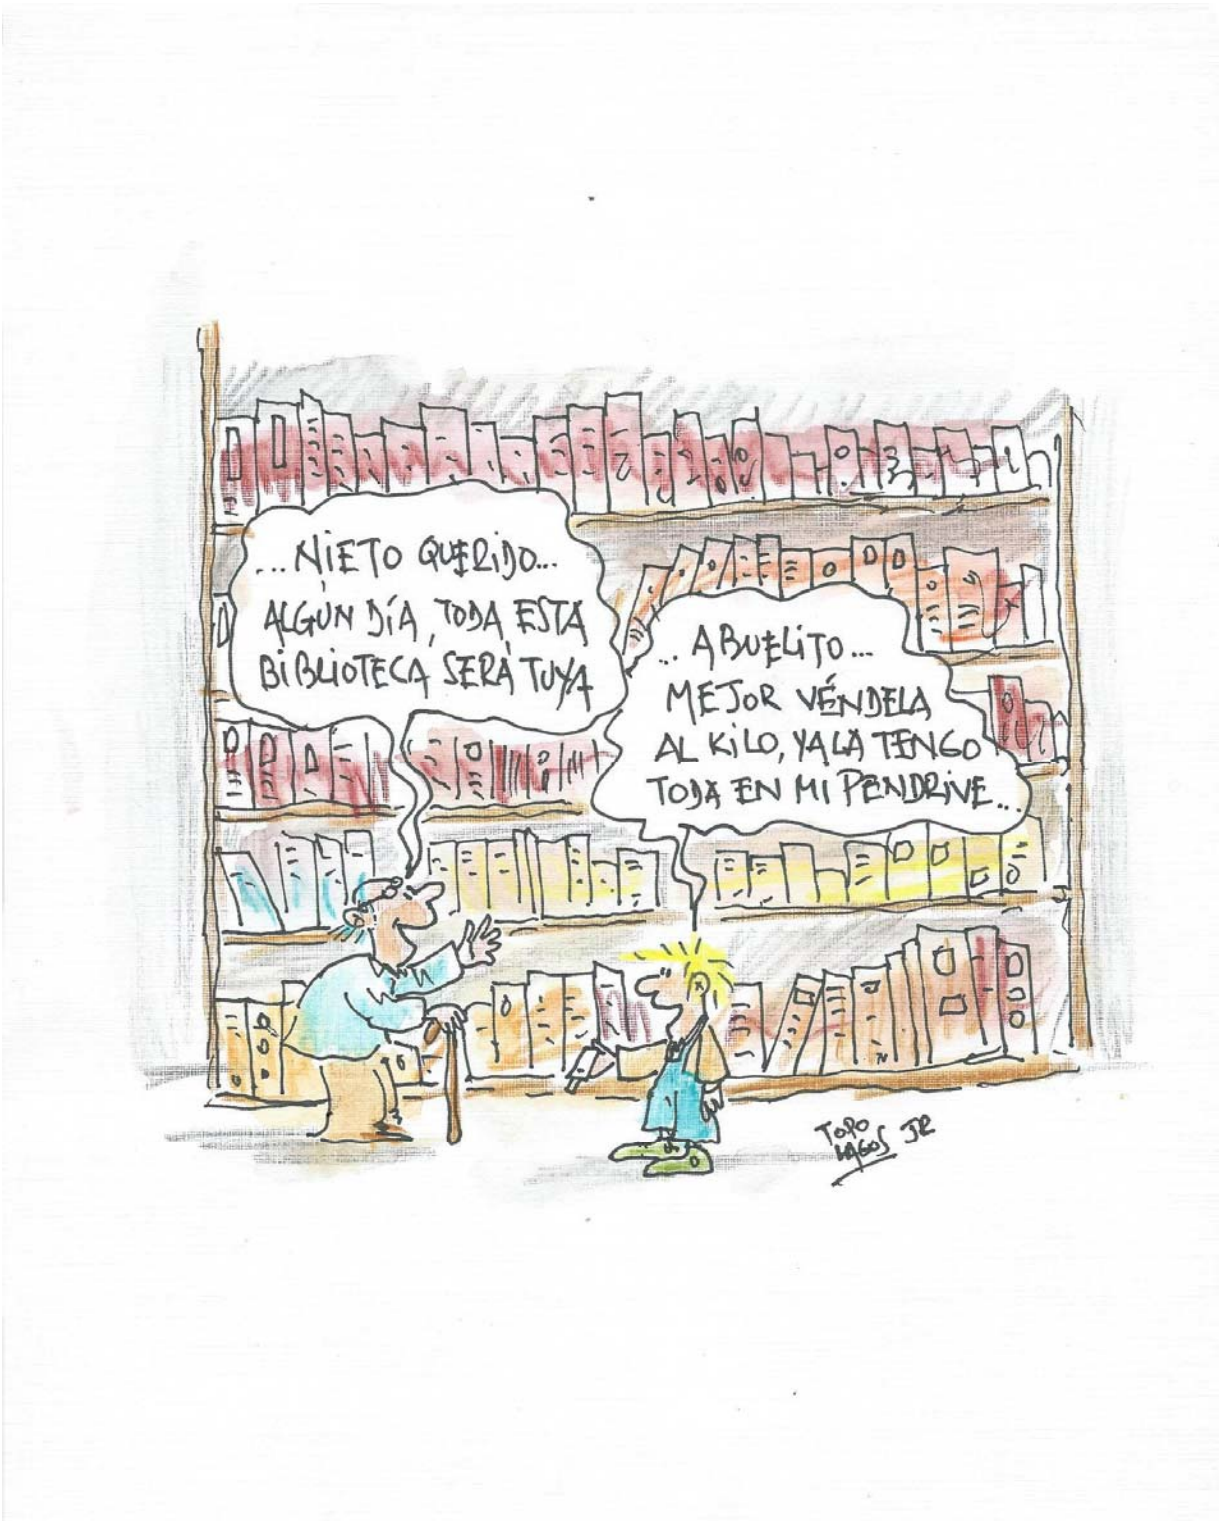 ...NIETO QUERIDO...
ALGÚN DÍA, TODA ESTA
BIBLIOTECA SERÁ TUYA
...ABUELITO...
MEJOR VÉNDELA
AL KILO, YA LA TENGO
TODA EN MI PENDRIVE...
TOPO
LAGOS JR